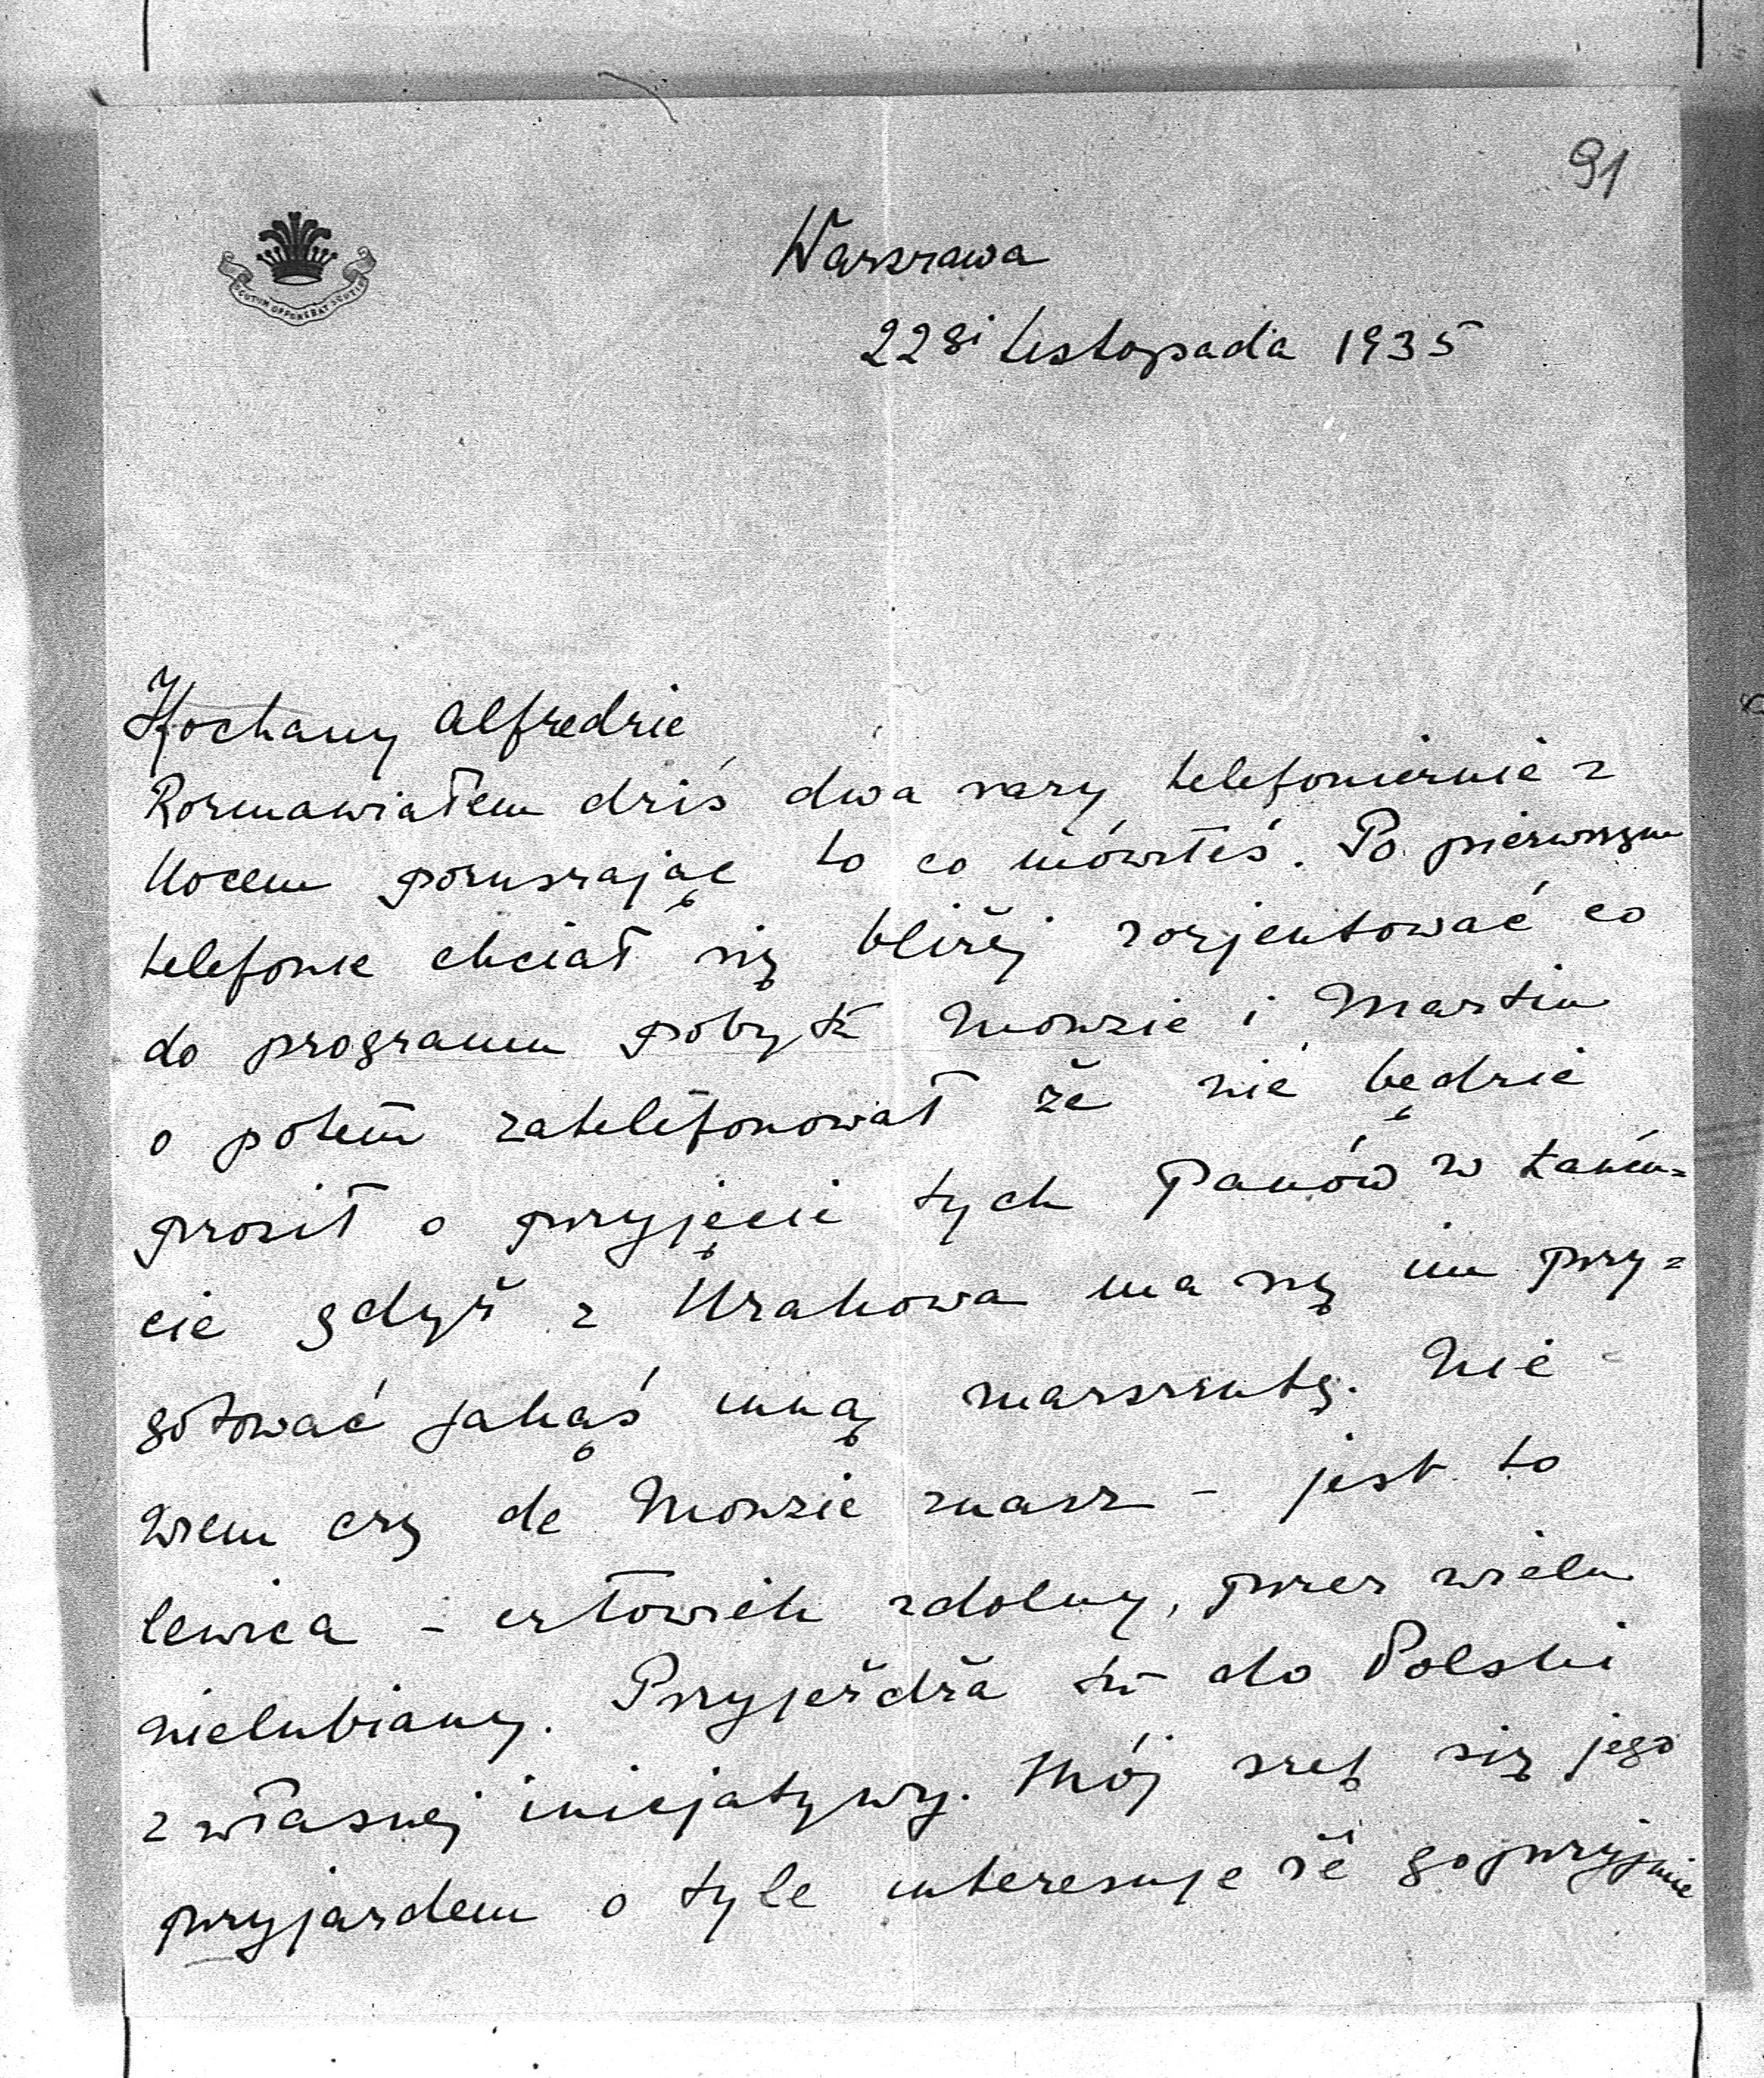 91
SCUTUM OPPONEBAT SCUTIS
Warszawa
22gi Listopada 1935
Kochany Alfredzie
Rozmawiałem dziś dwa razy telefonicznie z
Kocem poruszając to co mówiłeś. Po pierwszym
telefonie chciał się bliżej zorjentować co
do programu pobytu Monzie i Martin
o potem zatelefonował że nie będzie
prosił o przyjęcie tych Panów w Łańcu=
cie gdyż z Krakowa ma się im przy=
gotować jakąś inną marszrutę. Nie
wiem czy de Monzie znasz – jest to
lewica – człowiek zdolny, przez wielu
nielubiany. Przyjeżdża tu do Polski
z własnej inicjatywy. Mój szef się jego
przyjazdem o tyle interesuje że go przyjmie